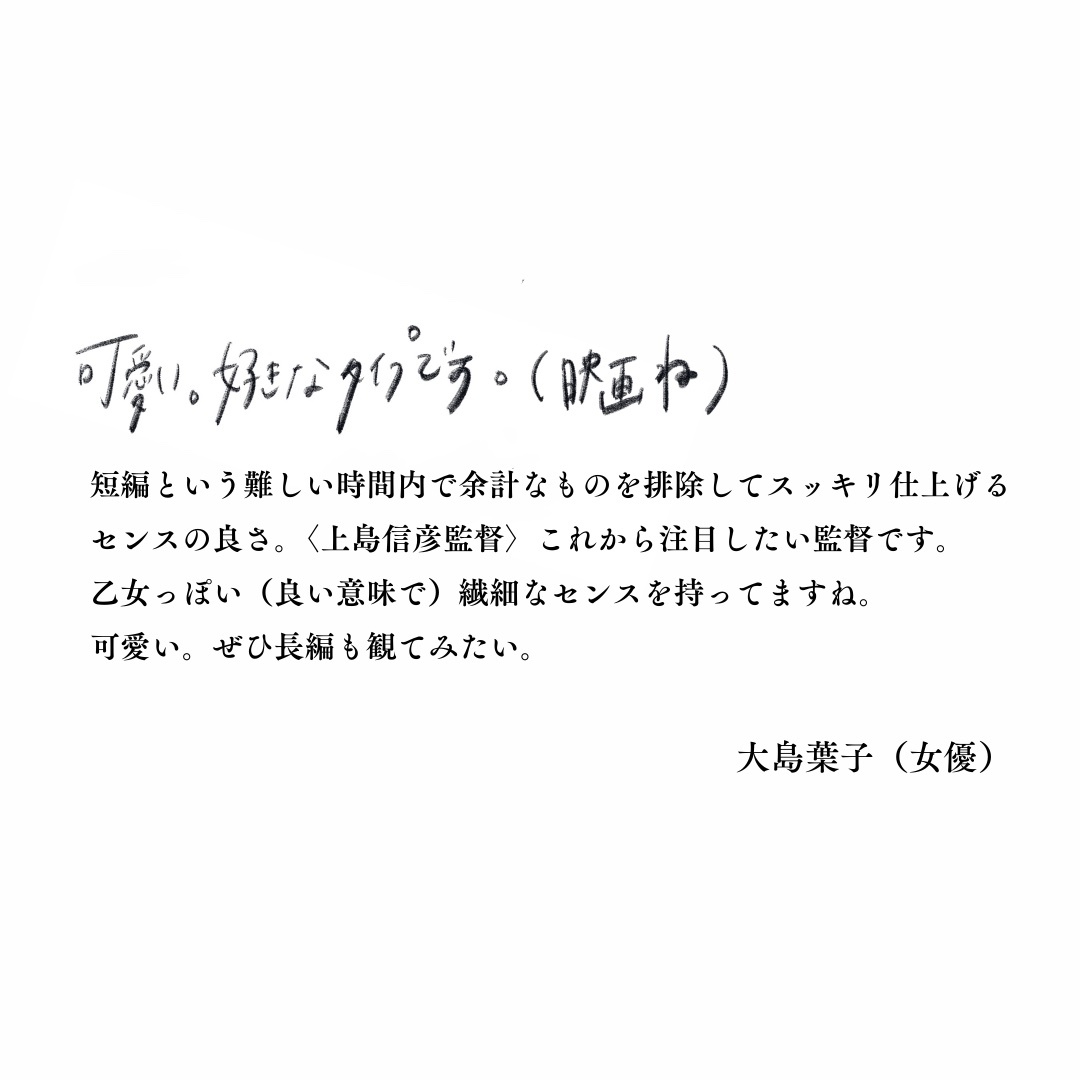 可愛い。好きなタイプです。(映画ね)
短編という難しい時間内で余計なものを排除してスッキリ仕上げる
センスの良さ。〈上島信彦監督〉これから注目したい監督です。
乙女っぽい（良い意味で）繊細なセンスを持ってますね。
可愛い。ぜひ長編も観てみたい。
大島葉子（女優）